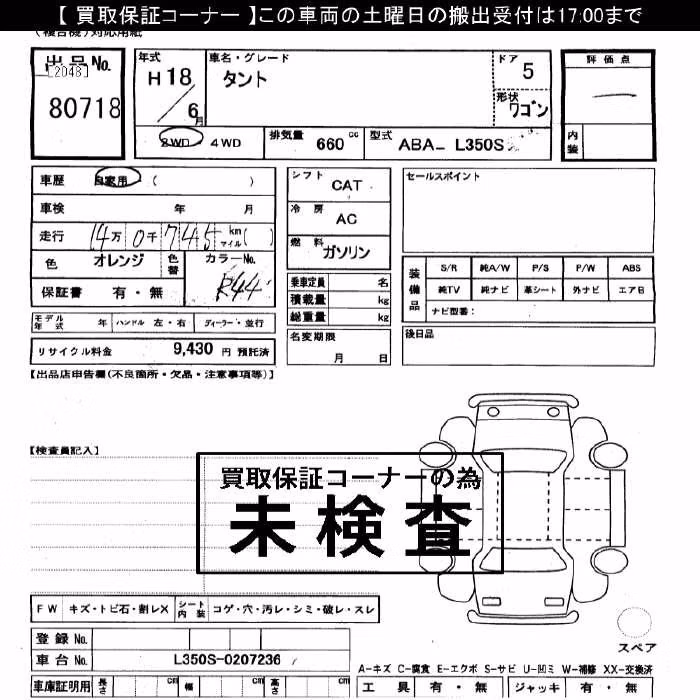 【 買取保証コーナー 】この車両の土曜日の搬出受付は17:00まで
(複合機)対応用紙
出品No. [2048] 80718
年式 H18 / 6月
車名・グレード タント
ドア 5
形状 ワゴン
評価点
内装
2WD ・ 4WD
排気量 660 cc
型式 ABA- L350S
車歴 自家用 ( )
車検 年 月
走行 14万 0千 745 km マイル ( )
色 オレンジ 色替 カラーNo. R44
保証書 有・無
シフト CAT
冷房 AC
燃料 ガソリン
乗車定員 名
積載量 kg
総重量 kg
セールスポイント
装備品
S/R 純A/W P/S P/W ABS
純TV 純ナビ 革シート 外ナビ エアB
ナビ型番:
モデル年式 年 ハンドル 左・右 ディーラー・並行
名変期限 月 日
後日品
リサイクル料金 9,430 円 預託済
【出品店申告欄(不良箇所・欠品・注意事項等)】
【検査員記入】
買取保証コーナーの為
未検査
FW キズ・トビ石・割レX シート内装 コゲ・穴・汚レ・シミ・破レ・スレ
スペア
登録No.
車台No. L350S-0207236
A-キズ C-腐食 E-エクボ S-サビ U-凹ミ W-補修 XX-交換済
車庫証明用 長さ cm 幅 cm 高さ cm
工具 有・無 ジャッキ 有・無